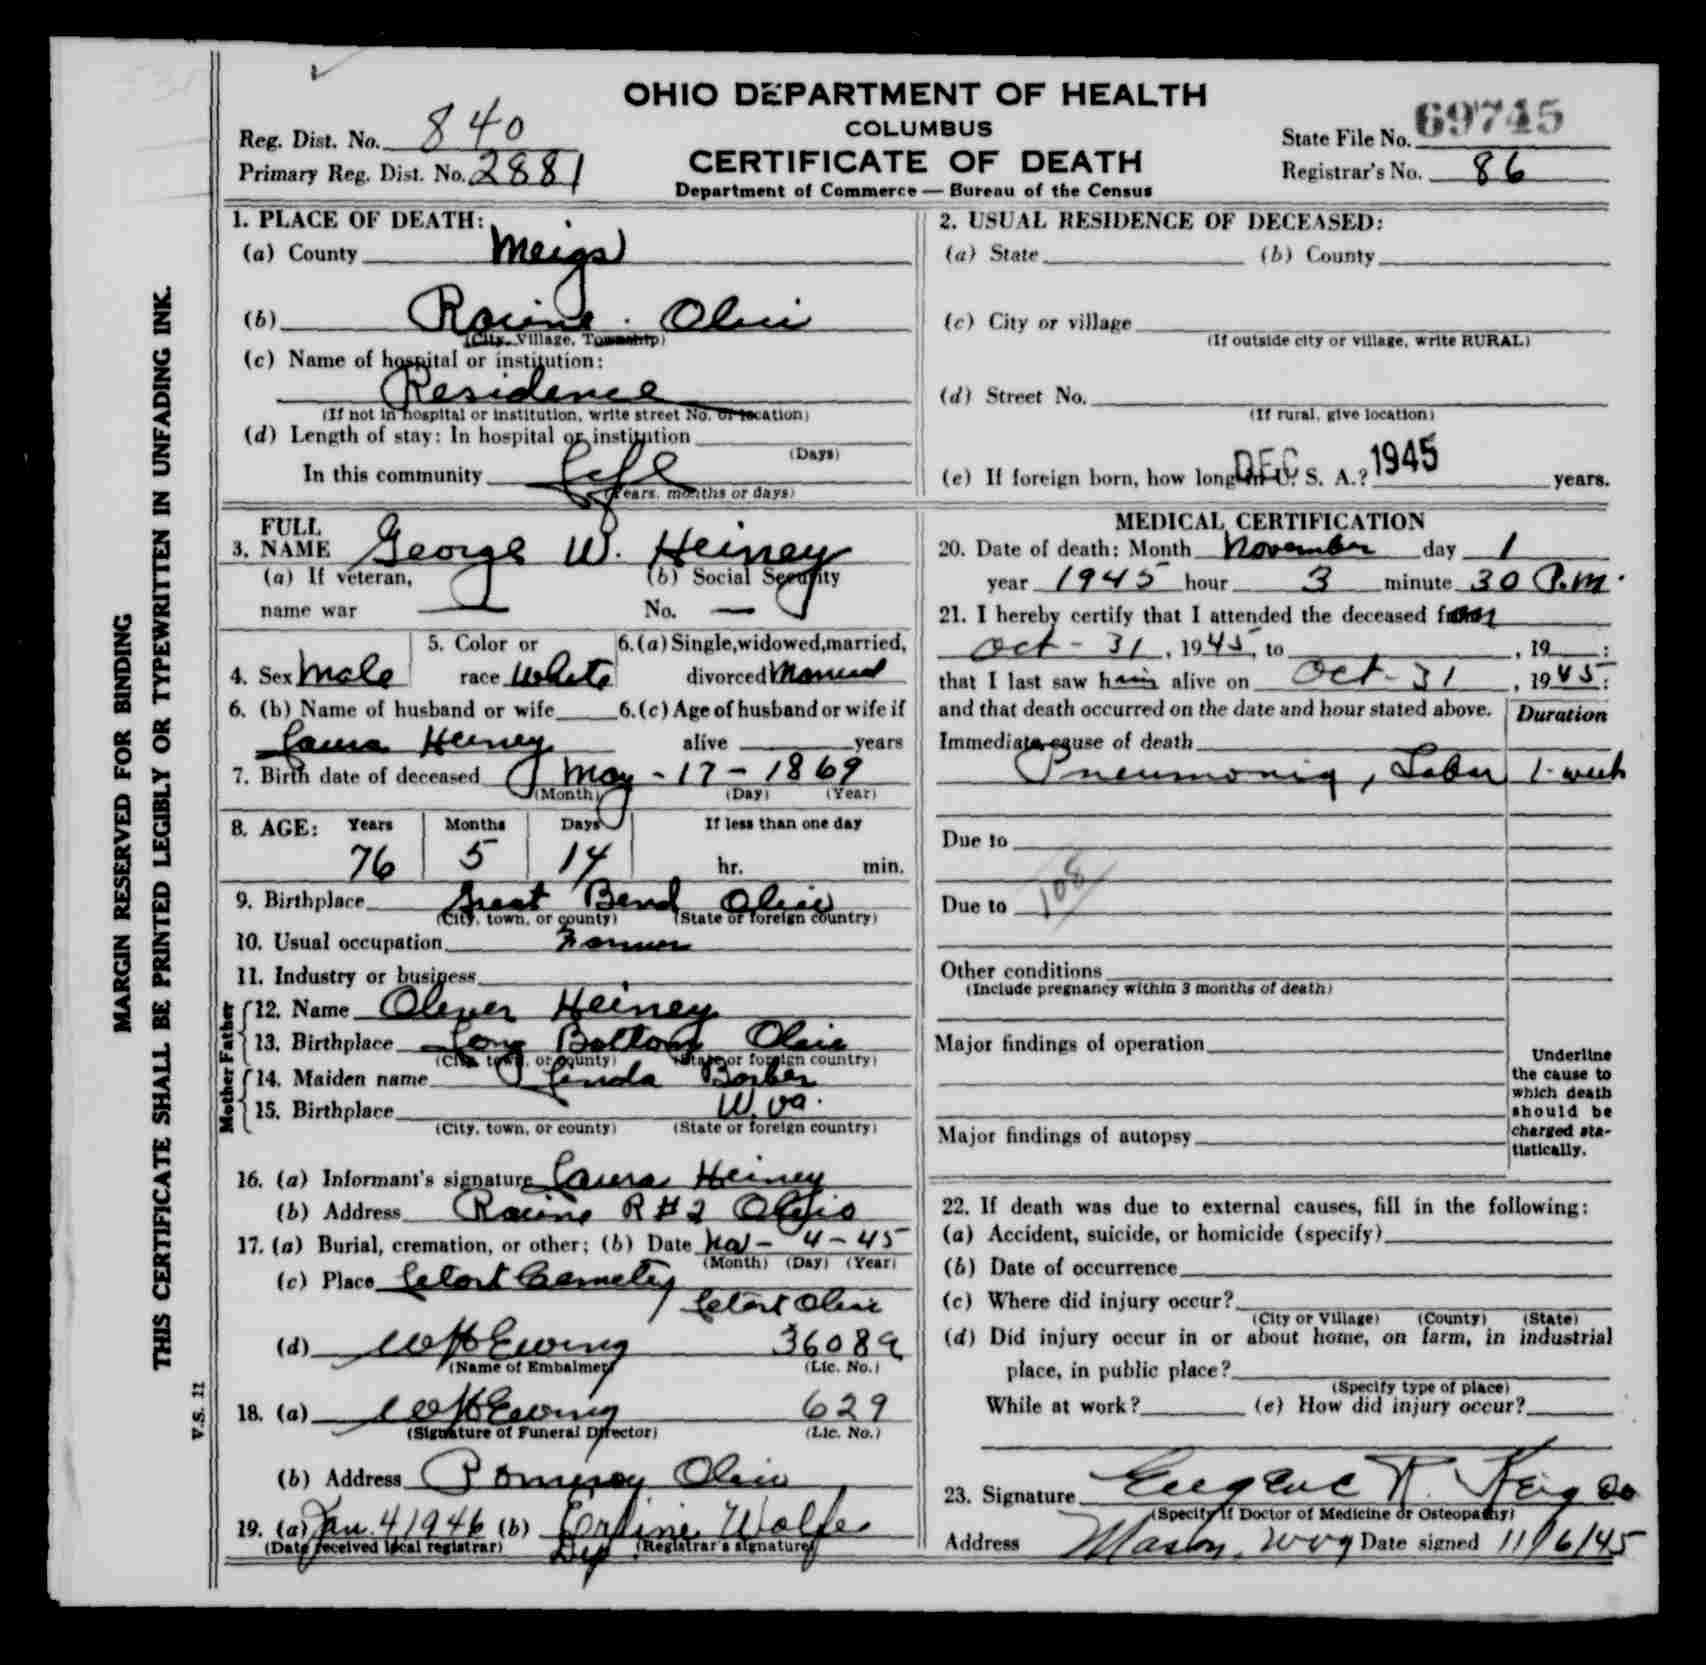 OHIO DEPARTMENT OF HEALTH
COLUMBUS
CERTIFICATE OF DEATH
Department of Commerce — Bureau of the Census
Reg. Dist. No. 840
Primary Reg. Dist. No. 2881
State File No. 69745
Registrar's No. 86
1. PLACE OF DEATH:
(a) County Meigs
(b) Racine. Ohio
(City, Village, Township)
(c) Name of hospital or institution:
Residence
(If not in hospital or institution, write street No. or location)
(d) Length of stay: In hospital or institution
(Days)
In this community Life
(Years, months or days)
2. USUAL RESIDENCE OF DECEASED:
(a) State (b) County
(c) City or village
(If outside city or village, write RURAL)
(d) Street No.
(If rural, give location)
DEC 1945
(e) If foreign born, how long in U. S. A.? years.
3. FULL NAME George W. Heiney
(a) If veteran, name war —
(b) Social Security No. —
4. Sex Male
5. Color or race White
6. (a) Single, widowed, married, divorced Married
6. (b) Name of husband or wife
Laura Heiney
6. (c) Age of husband or wife if alive years
7. Birth date of deceased May - 17 - 1869
(Month) (Day) (Year)
8. AGE: Years Months Days If less than one day
76 5 14 hr. min.
9. Birthplace Great Bend Ohio
(City, town, or county) (State or foreign country)
10. Usual occupation Farmer
11. Industry or business
Father
12. Name Oliver Heiney
13. Birthplace Long Bottom Ohio
(City, town, or county) (State or foreign country)
Mother
14. Maiden name Linda Barber
15. Birthplace W. Va.
(City, town, or county) (State or foreign country)
16. (a) Informant's signature Laura Heiney
(b) Address Racine R#2 Ohio
17. (a) Burial, cremation, or other; (b) Date Nov - 4 - 45
(Month) (Day) (Year)
(c) Place Letart Cemetery
Letart Ohio
(d) W H Ewing 3608a
(Name of Embalmer) (Lic. No.)
18. (a) W H Ewing 629
(Signature of Funeral Director) (Lic. No.)
(b) Address Pomeroy Ohio
19. (a) Jan. 4 1946 (b) Erline Wolfe
(Date received local registrar) Dep. (Registrar's signature)
MEDICAL CERTIFICATION
20. Date of death: Month November day 1
year 1945 hour 3 minute 30 P.M.
21. I hereby certify that I attended the deceased from
Oct - 31, 1945, to , 19 ;
that I last saw him alive on Oct - 31, 1945;
and that death occurred on the date and hour stated above. Duration
Immediate cause of death
Pneumonia, Lobar 1-week
Due to
108
Due to
Other conditions
(Include pregnancy within 3 months of death)
Major findings of operation
Major findings of autopsy
Underline
the cause to
which death
should be
charged sta-
tistically.
22. If death was due to external causes, fill in the following:
(a) Accident, suicide, or homicide (specify)
(b) Date of occurrence
(c) Where did injury occur?
(City or Village) (County) (State)
(d) Did injury occur in or about home, on farm, in industrial
place, in public place?
(Specify type of place)
While at work? (e) How did injury occur?
23. Signature Eugene R.
(Specify if Doctor of Medicine or Osteopathy)
Address Mason, W Va Date signed 11/6/45
MARGIN RESERVED FOR BINDING
THIS CERTIFICATE SHALL BE PRINTED LEGIBLY OR TYPEWRITTEN IN UNFADING INK.
V.S. 11